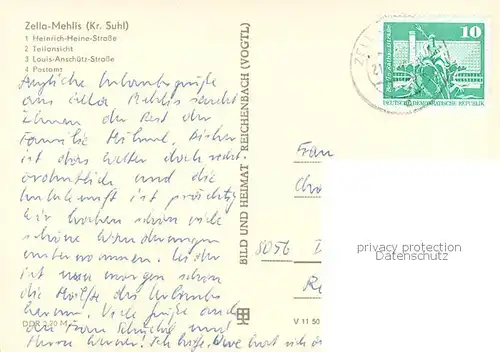 Zella-Mehlis (Kr. Suhl)
1 Heinrich-Heine-Straße
2 Teilansicht
3 Louis-Anschütz-Straße
4 Postamt
Urlaubsgrüße
aus Zella Mehlis sendet
Ihnen der Rest der
Familie Bisher
ist das Wetter doch recht
ordentlich und die
Unterkunft ist prächtig
Wir haben schon viele
schöne Wanderungen
unternommen. Leider
ist nun morgen schon
die Hälfte des Urlaubs
herum. Viele Grüße auch
von Frau und
Herrn Ich hoffe, Uwe hört sich
DDR 0,20 M
BILD UND HEIMAT REICHENBACH (VOGTL)
V 11 50
10
DEUTSCHE DEMOKRATISCHE REPUBLIK
ZELL
Frau
8056 D
privacy protection
Datenschutz